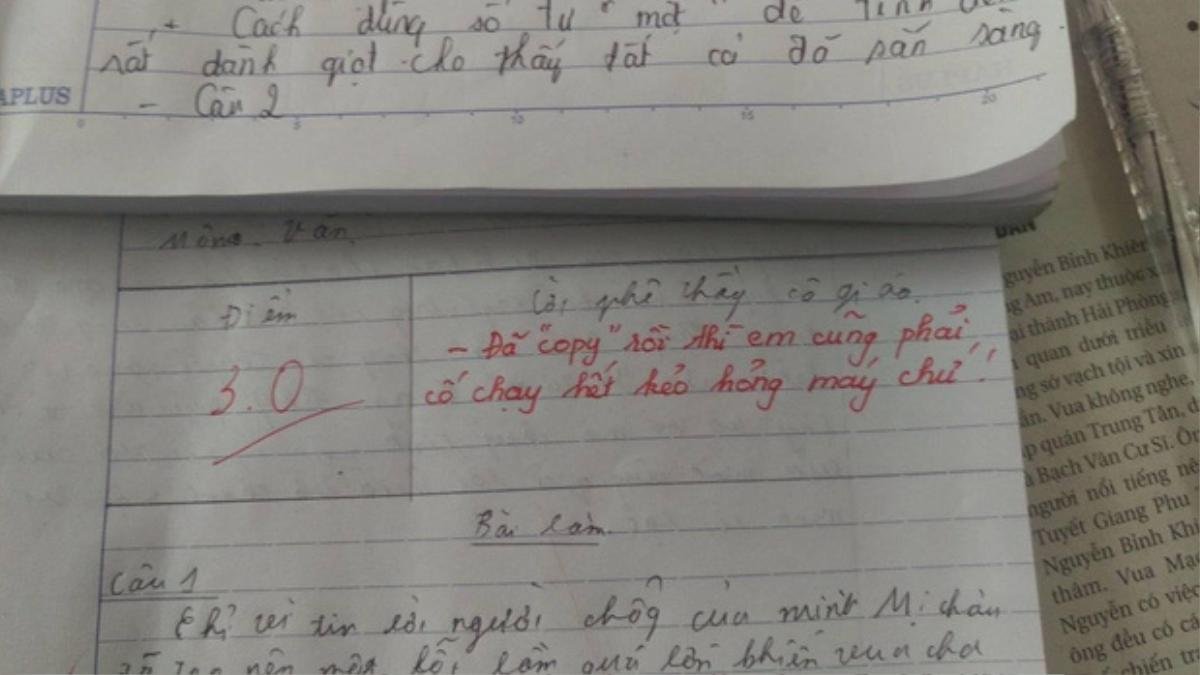 + Cách dùng số từ "một" để tình
rất dành giọt cho thấy tất cả đó sẵn sàng.
APLUS
- Câu 2
0 5 10 15 20
Môn: Văn
Điểm
Lời phê thầy cô giáo.
3.0
- Đã "copy" rồi thì em cũng phải
cố chạy hết kẻo hỏng máy chứ!
Bài làm
Câu 1
Chỉ vì tin lời người chồng của mình Mị châu
nên một lỗi lầm quá lớn khiến vua cha
DÂN
guyễn Bỉnh Khiêm
g Am, nay thuộc x
ại thành Hải Phòng
quan dưới triều
ng sớ vạch tội và xin
ần. Vua không nghe,
p quán Trung Tân, d
Bạch Vân Cư Sĩ. Ôn
người nổi tiếng
Tuyết Giang Phu
Nguyễn Bỉnh Khi
thâm. Vua Mạ
Nguyễn có việc
ông đều có cá
chiến tr